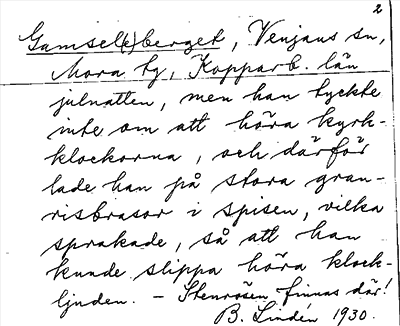 2
Gamsel(e)berget, Venjans sn,
Mora tg, Kopparb. län
julnatten, men han tyckte
inte om att höra kyrk-
klockorna, och därför
lade han på stora gran-
risbrasor i spisen, vilka
sprakade, så att han
kunde slippa höra klock-
ljuden. – Stenrösen finnas där!
B. Lindén 1930.